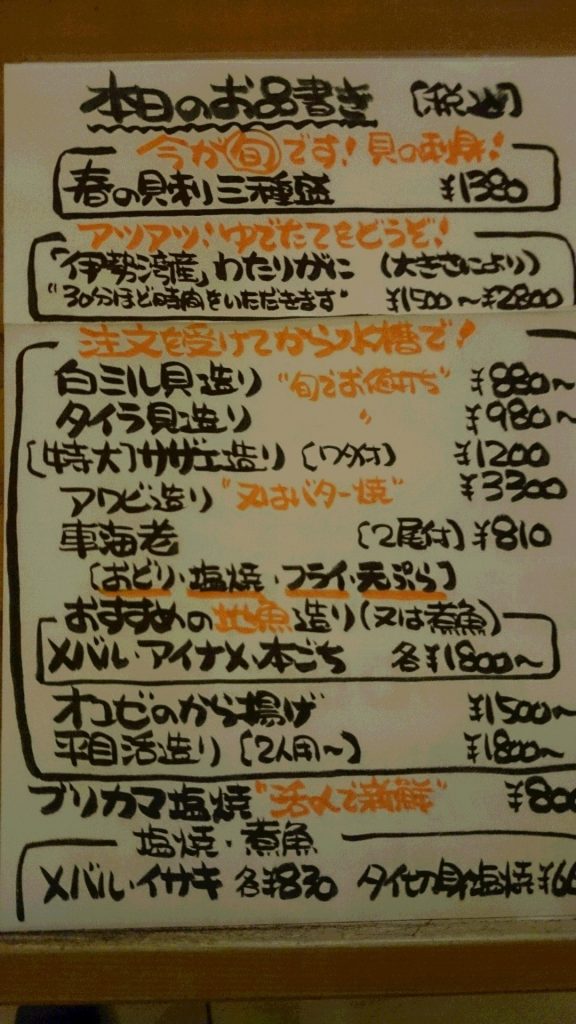 本日のお品書き [税込]
今が旬です!貝の刺身!
春の貝刺り三種盛 ¥1380
アツアツ!ゆでたてをどうぞ!
「伊勢湾産」わたりがに (大きさにより)
"30分ほど時間をいただきます" ¥1500～¥2800
注文を受けてから水槽で!
白ミル貝造り "旬でお値打ち" ¥880～
タイラ貝造り 〃 ¥980～
[特大]サザエ造り [ワタ付] ¥1200
アワビ造り "又はバター焼" ¥3300
車海老 [2尾付] ¥810
[おどり・塩焼・フライ・天ぷら]
おすすめの地魚造り(又は煮魚)
メバル・アイナメ・本ごち 各¥1800～
オコゼのから揚げ ¥1500～
平目活造り [2人用～] ¥1800～
ブリカマ塩焼 "活〆で新鮮" ¥800
塩焼・煮魚
メバル・イサキ 各¥830 タイ切身塩焼